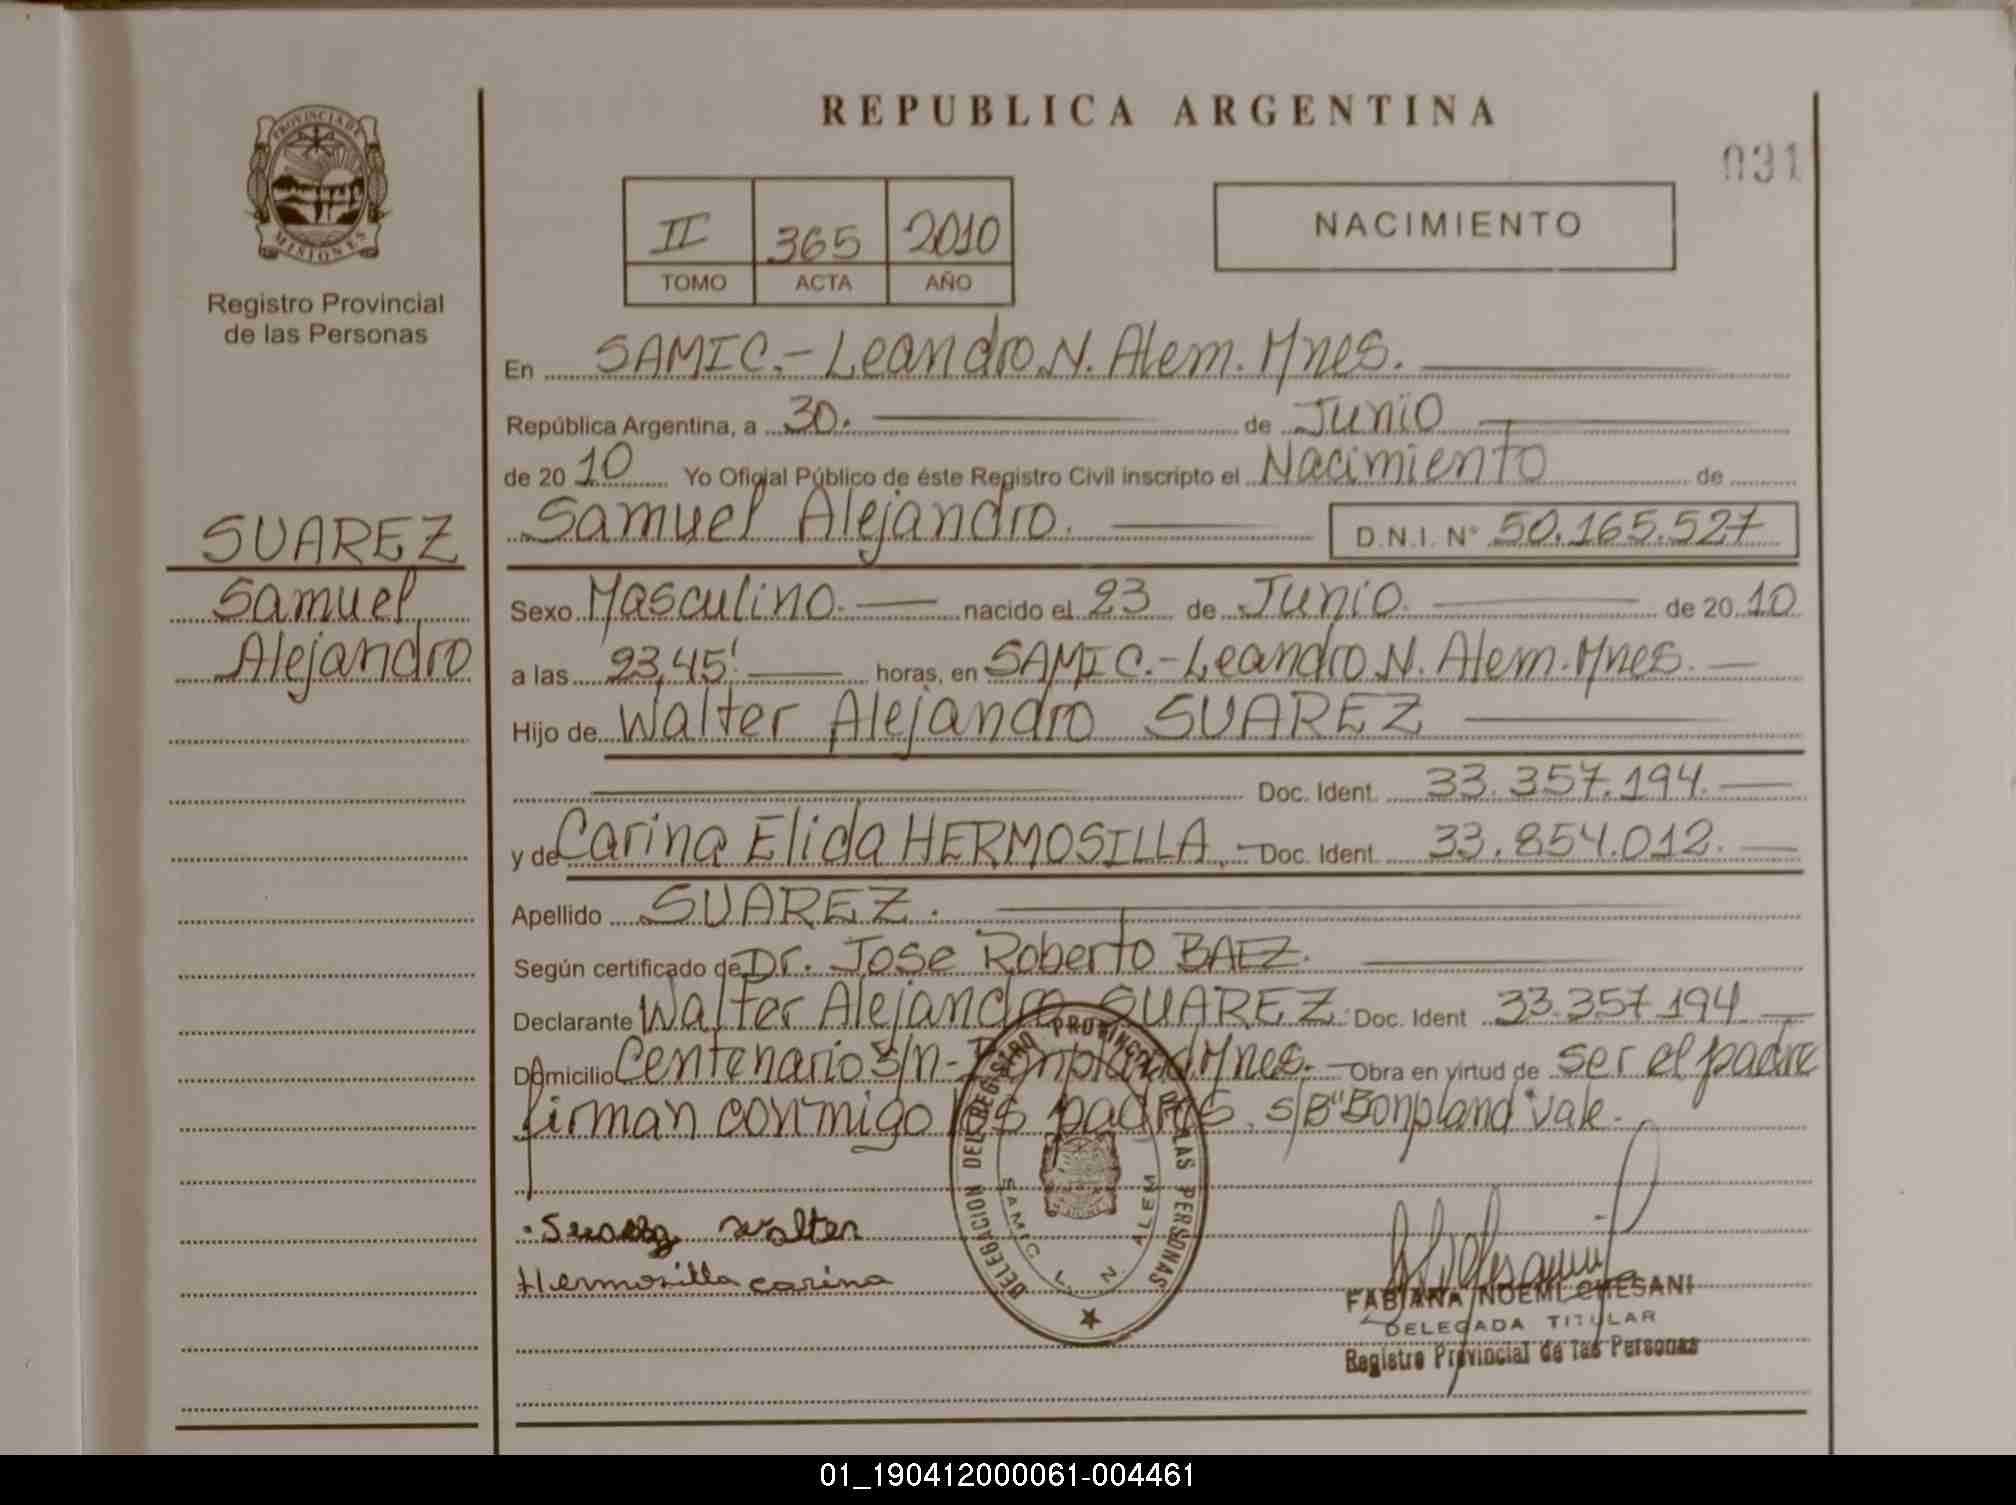 REPUBLICA ARGENTINA
031
PROVINCIA DE
MISIONES
Registro Provincial
de las Personas
II 365 2010
TOMO ACTA AÑO
NACIMIENTO
En SAMIC.- Leandro N. Alem. Mnes.
República Argentina, a 30. de Junio
de 20 10 Yo Oficial Público de éste Registro Civil inscripto el Nacimiento de
Samuel Alejandro. D.N.I. N° 50.165.527
SUAREZ
Samuel
Alejandro
Sexo Masculino. nacido el 23 de Junio. de 20 10
a las 23,45' horas, en SAMIC.- Leandro N. Alem. Mnes.
Hijo de Walter Alejandro SUAREZ
Doc. Ident. 33.357.194.
y de Carina Elida HERMOSILLA, Doc. Ident. 33.854.012.
Apellido SUAREZ.
Según certificado de Dr. Jose Roberto BAEZ.
Declarante Walter Alejandro SUAREZ Doc. Ident 33.357.194
Domicilio Centenario s/n- Bonpland, Mnes. Obra en virtud de ser el padre
firman conmigo los padres. S/B "Bonpland" vale.
DELEGACION DEL REGISTRO PROVINCIAL DE LAS PERSONAS
SAMIC L. N. ALEM
Suarez Walter
Hermosilla carina
FABIANA NOEMI CHESANI
DELEGADA TITULAR
Registro Provincial de las Personas
01_190412000061-004461